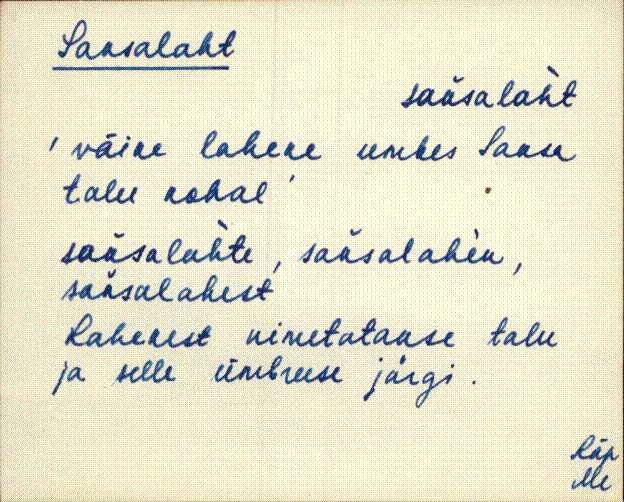 Sansalaht
saǹsalàht
'väike laheke umbes Sansa
talu kohal'
saǹsalàhte, saǹsalahèn,
saǹsalahest
Lahekest nimetatakse talu
ja selle ümbruse järgi.
Räp
Me